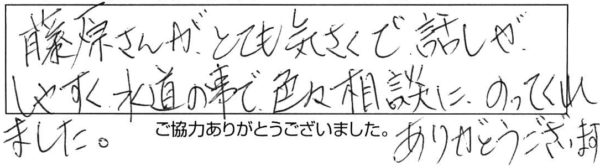 藤原さんが、とても気さくで、話しが、
しやすく、水道の事で、色々相談に、のってくれ
ました。 ご協力ありがとうございました。 ありがとうございます